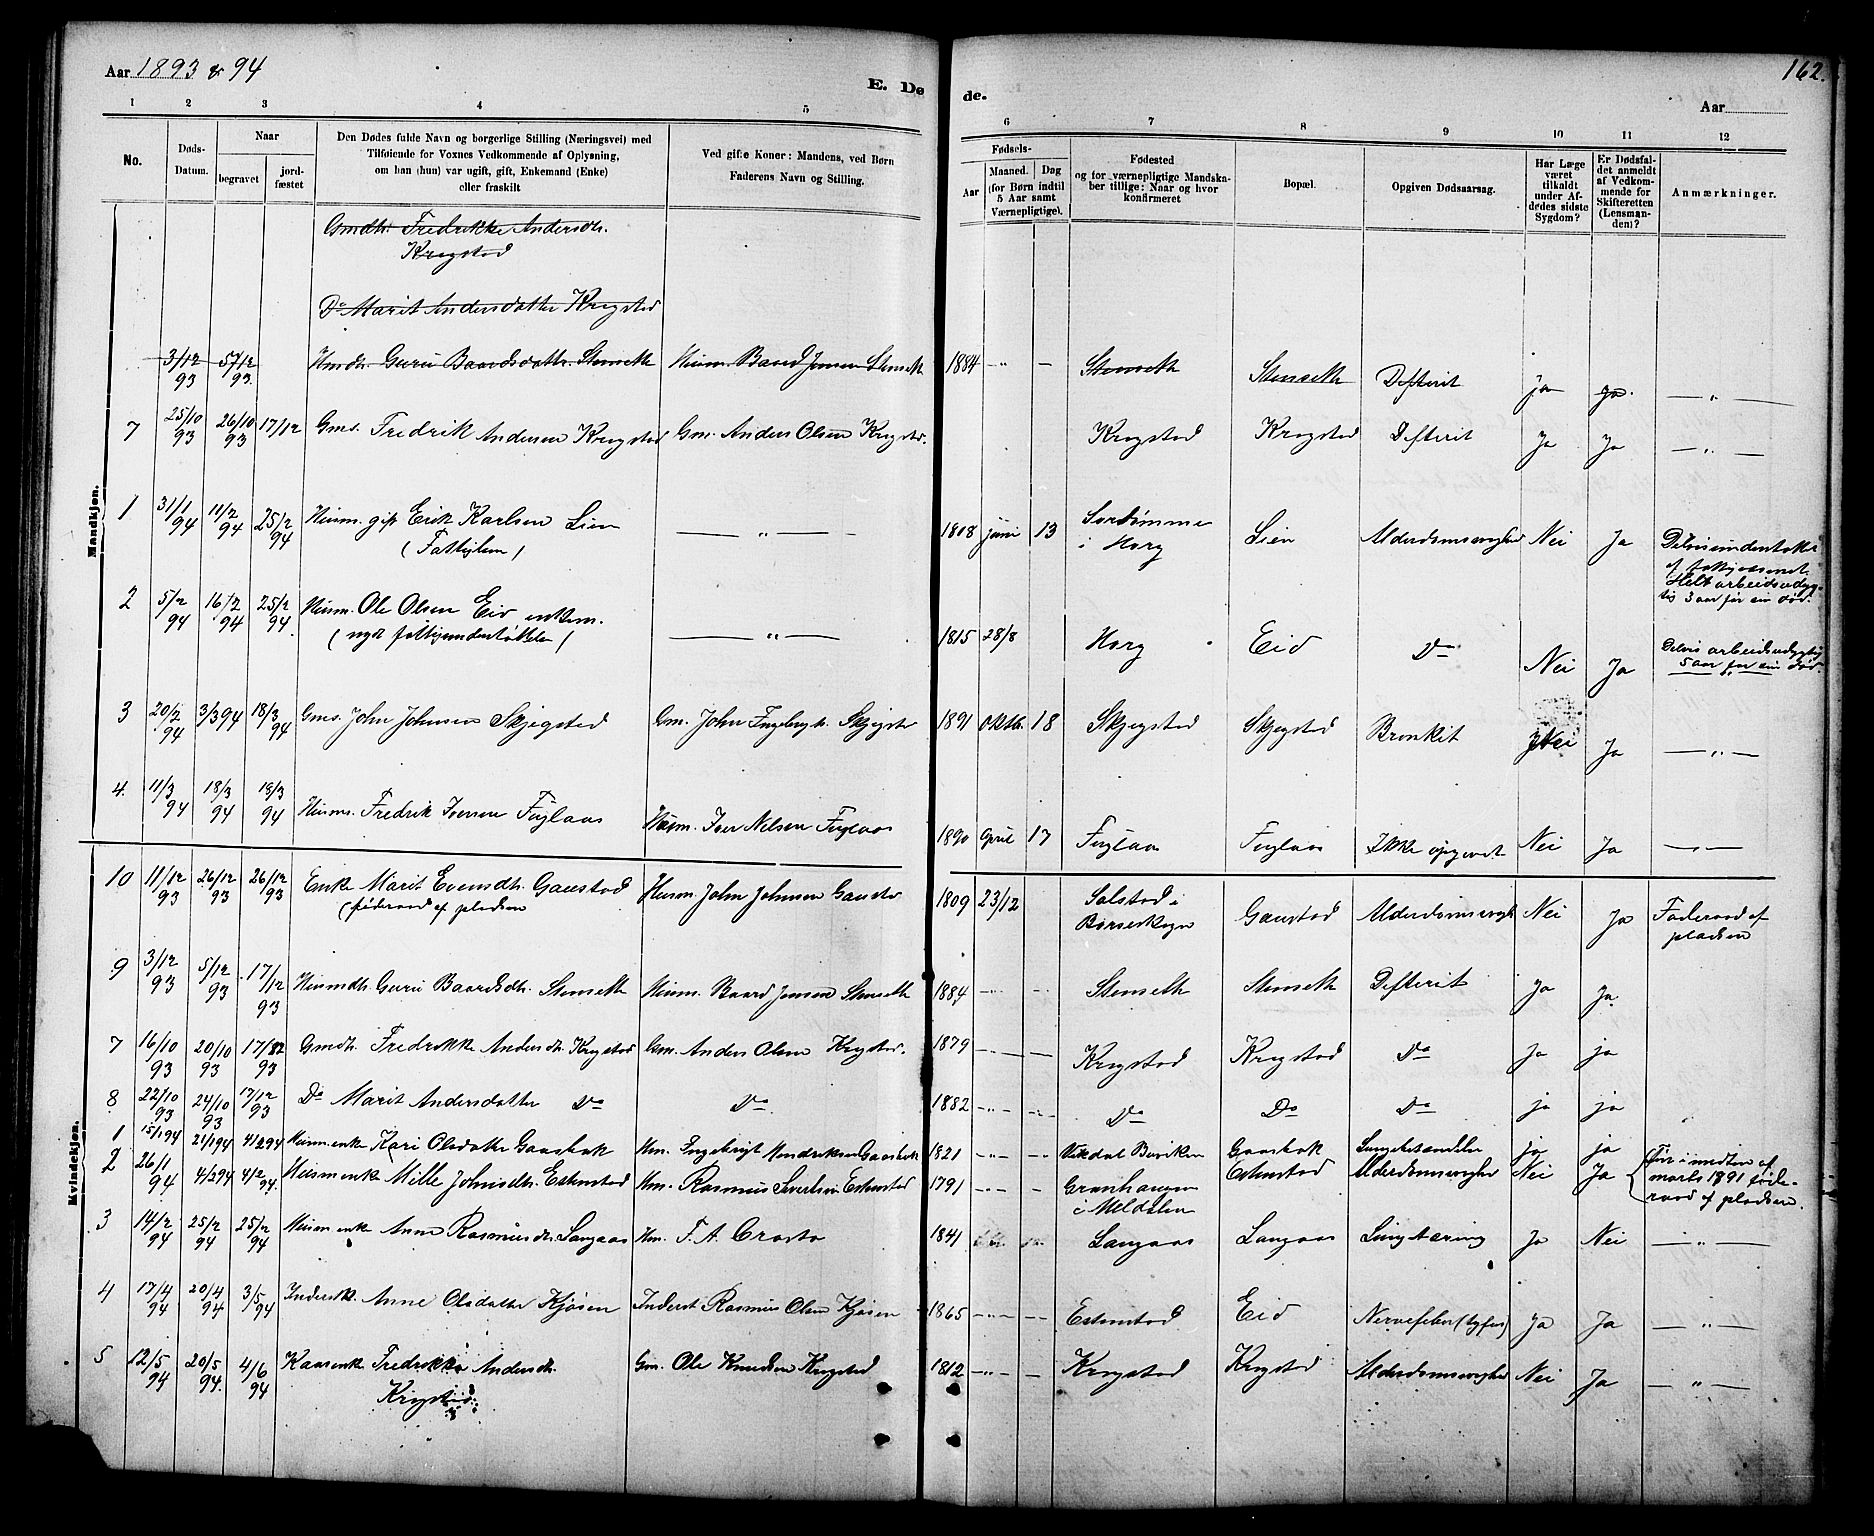 Aar 1893 & 94
E. Dø
de.
162.
Aar
1 2 3 4 5 6 7 8 9 10 11 12
No.
Døds-
Datum.
Naar
begravet
jord-
fæstet
Den Dødes fulde Navn og borgerlige Stilling (Næringsvei) med
Tilføiende for Voxnes Vedkommende af Oplysning,
om han (hun) var ugift, gift, Enkemand (Enke)
eller fraskilt
Ved gifte Koner: Mandens, ved Børn
Faderens Navn og Stilling.
Fødsels-
Aar
Maaned. Dag
(for Børn indtil
5 Aar samt
Værnepligtige).
Fødested
og for værnepligtige Mandska-
ber tillige: Naar og hvor
konfirmeret
Bopæl.
Opgiven Dødsaarsag.
Har Læge
været
tilkaldt
under Af-
dødes sidste
Sygdom?
Er Dødsfal-
det anmeldt
af Vedkom-
mende for
Skifteretten
(Lensman-
den)?
Anmærkninger.
Mandkjøn.
Gmdtr. Fredrikke Andersdtr.
Krogstad
Do Marit Andersdatter Krogstad
3/12 93 5/12 93 Husmdtr. Guru Baardsdatter Stenseth Husm. Baard Jonsen Stenseth 1884 -"- - Stenseth Stenseth Defterit ja ja. -"-
7 25/10 93 26/10 93 17/12 Gms. Fredrik Andersen Krogstad Gm. Anders Olsen Krogstad. Krogstad Krogstad Defterit Ja Ja -"-
1 31/1 94 11/2 94 25/2 94 Husm. gift Erik Karlsen Lien -"- 1808 juni 13 i Horg Lien Alderdomssvaghed Nei Ja
(Fattiglem)
af fattigvæsenet.
Helt arbeidsudyg-
tig 3 aar før sin død.
2 5/2 94 16/2 94 25/2 94 Husm. Ole Olsen Eid enkem. -"- 1815 28/8 Horg Eid Do Nei Ja
(nydt fattigunderstøttelse)
Delvis arbeidsudygtig
5 aar før sin død.
3 20/2 94 3/3 94 18/3 94 Gms. John Johnsen Skjegstad Gm. John Ingebrigts. Skjegstad 1891 Oktb. 18 Skjegstad Skjegstad Bronkit Nei Ja -"-
4. 11/3 94 18/3 94 18/3 94 Husms. Fredrik Iversen Fuglaas Husm. Iver Nelsen Fuglaas 1890 April 17 Fuglaas Fuglaas Ikke opgivet Nei Ja -"-
Kvindekjøn.
10 11/12 93 26/12 93 26/12 93 Enke Marit Evensdtr. Gaustad Husm. John Johnsen Gaustad 1809 23/12 Solstad i Børseskogn Gaustad Alderdomssvaghed Nei Ja Føderaad af
(føderaad af pladsen pladsen
9 3/12 93 5/12 93 17/12 93 Husmdtr. Guru Baardsdtr. Stenseth Husm. Baard Jonsen Stenseth 1884 -"- -"- Stenseth Stenseth Defterit Ja Ja.
7 16/10 93 20/10 93 17/12 93 Gmdtr. Fredrikke Andersdtr. Krogstad Gm. Anders Olsen Krogstad. 1879 -"- - Krogstad Krogstad Do Ja ja
8 22/10 93 24/10 93 17/12 93 Do Marit Andersdatter Do Do 1882 -"- -"- Do Do Do ja ja
1 15/1 94 21/1 94 4/2 94 Husm.enke Kari Olsdatter Gaasbak Hm. Ingebrigt Hendriksen Gaasbak 1821 -"- - Buviken Gaasbak Lungebetændelse ja ja
2 26/1 94 4/2 94 4/2 94. Husmenke Mille Johnsdtr. Estenstad Hm. Rasmus Sivertsen Estenstad 1791 -"- - Granhaugen i Meldalen Estenstad Alderdomssvaghed Nei Ja Før i midten af
marts 1891 føde-
raad af pladsen.
3 14/2 94 25/2 94 25/2 94 Husmenke Anne Rasmusdtr. Langaas Hm. T. A. 1841 Langaas Langaas Lungtæring Ja Nei -"-
4 17/4 94 20/4 94 3/5 94 Inderstk. Anne Olsdatter Kjøsen Inderst Rasmus Olsen Kjøsen 1865 -"- -- Estenstad Eid Nervefeber (tyfus) Ja Ja -"-
5 12/5 94 20/5 94. 4/6 94 Kaarenke Fredrikke Andersdtr. Gm. Ole Knudsen Krogstad 1812 -"- - Krogstad Krogstad Alderdomssvaghed Nei Ja -"-
Krogstad